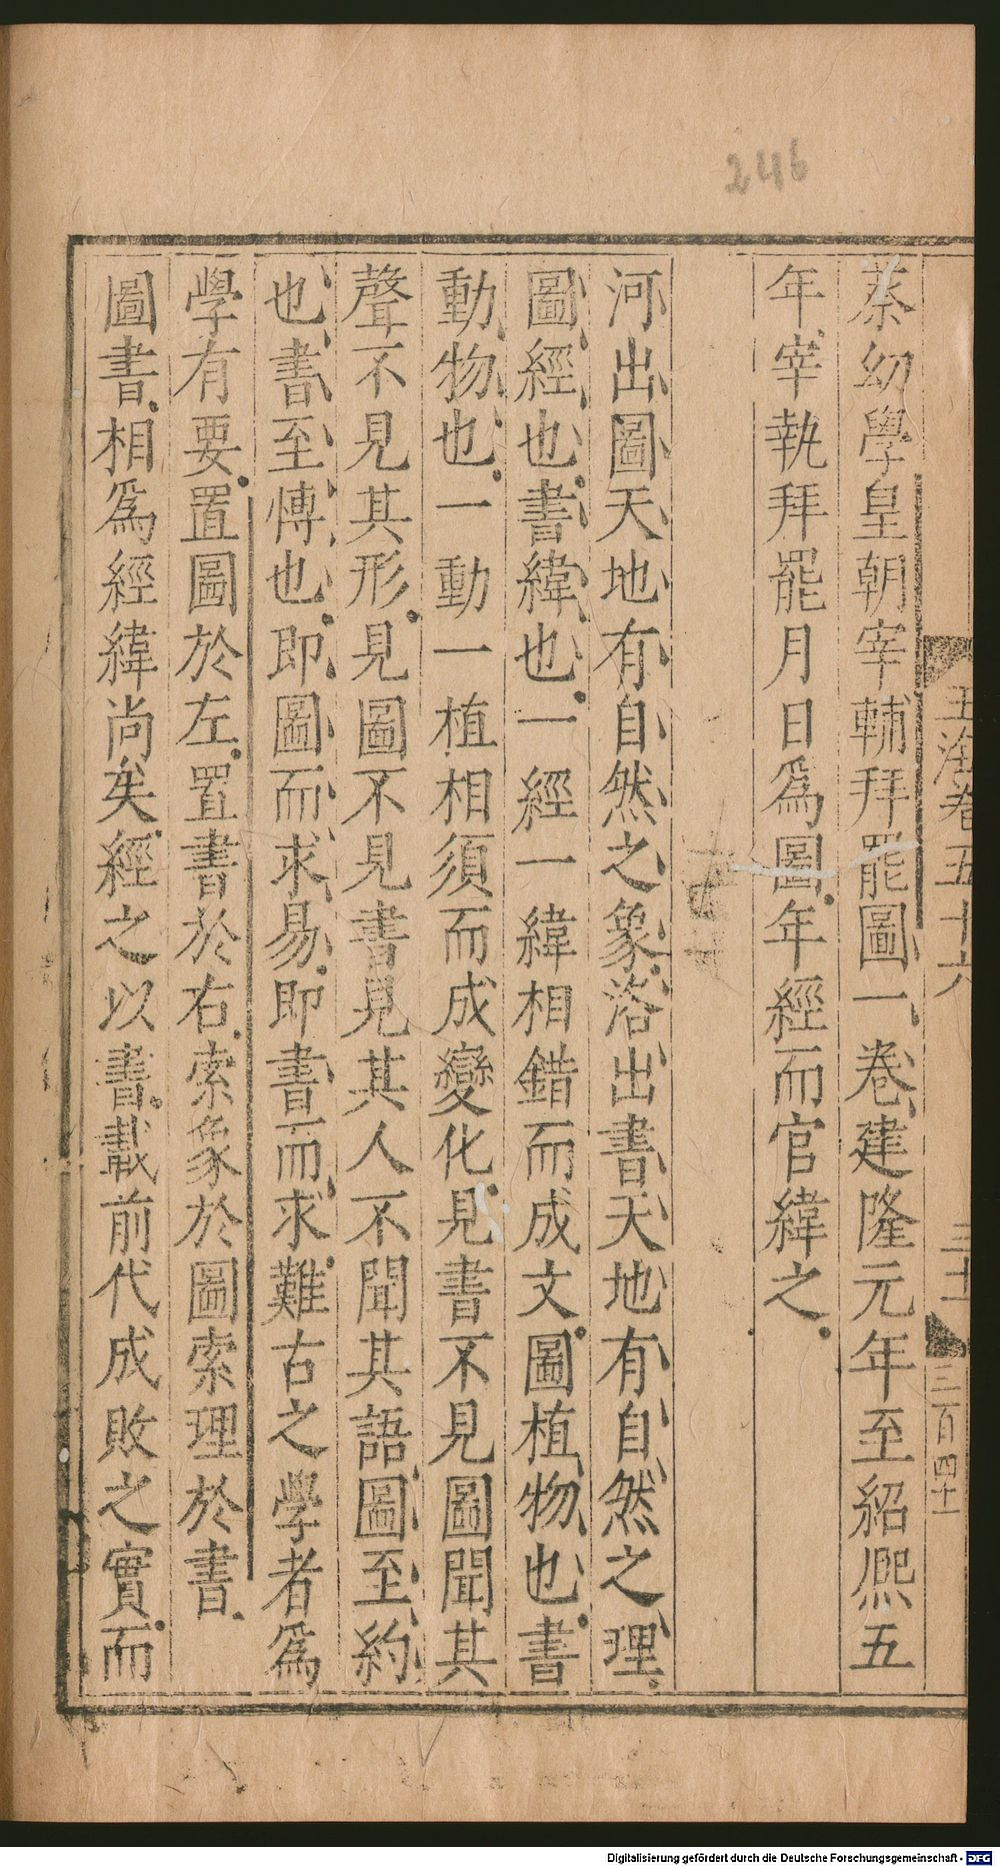 246
玉海卷五十六
三百四十
蔡幼學皇朝宰輔拜罷圖一卷建隆元年至紹熈五
年宰執拜罷月日爲圖年經而官緯之
河出圖天地有自然之象洛出書天地有自然之理
圖經也書緯也一經一緯相錯而成文圖植物也書
動物也一動一植相須而成變化見書不見圖聞其
聲不見其形見圖不見書見其人不聞其語圖至約
也書至愽也即圖而求易即書而求難古之學者爲
學有要置圖於左置書於右索象於圖索理於書
圖書相爲經緯尚矣經之以書載前代成敗之實而
Digitalisierung gefördert durch die Deutsche Forschungsgemeinschaft - DFG